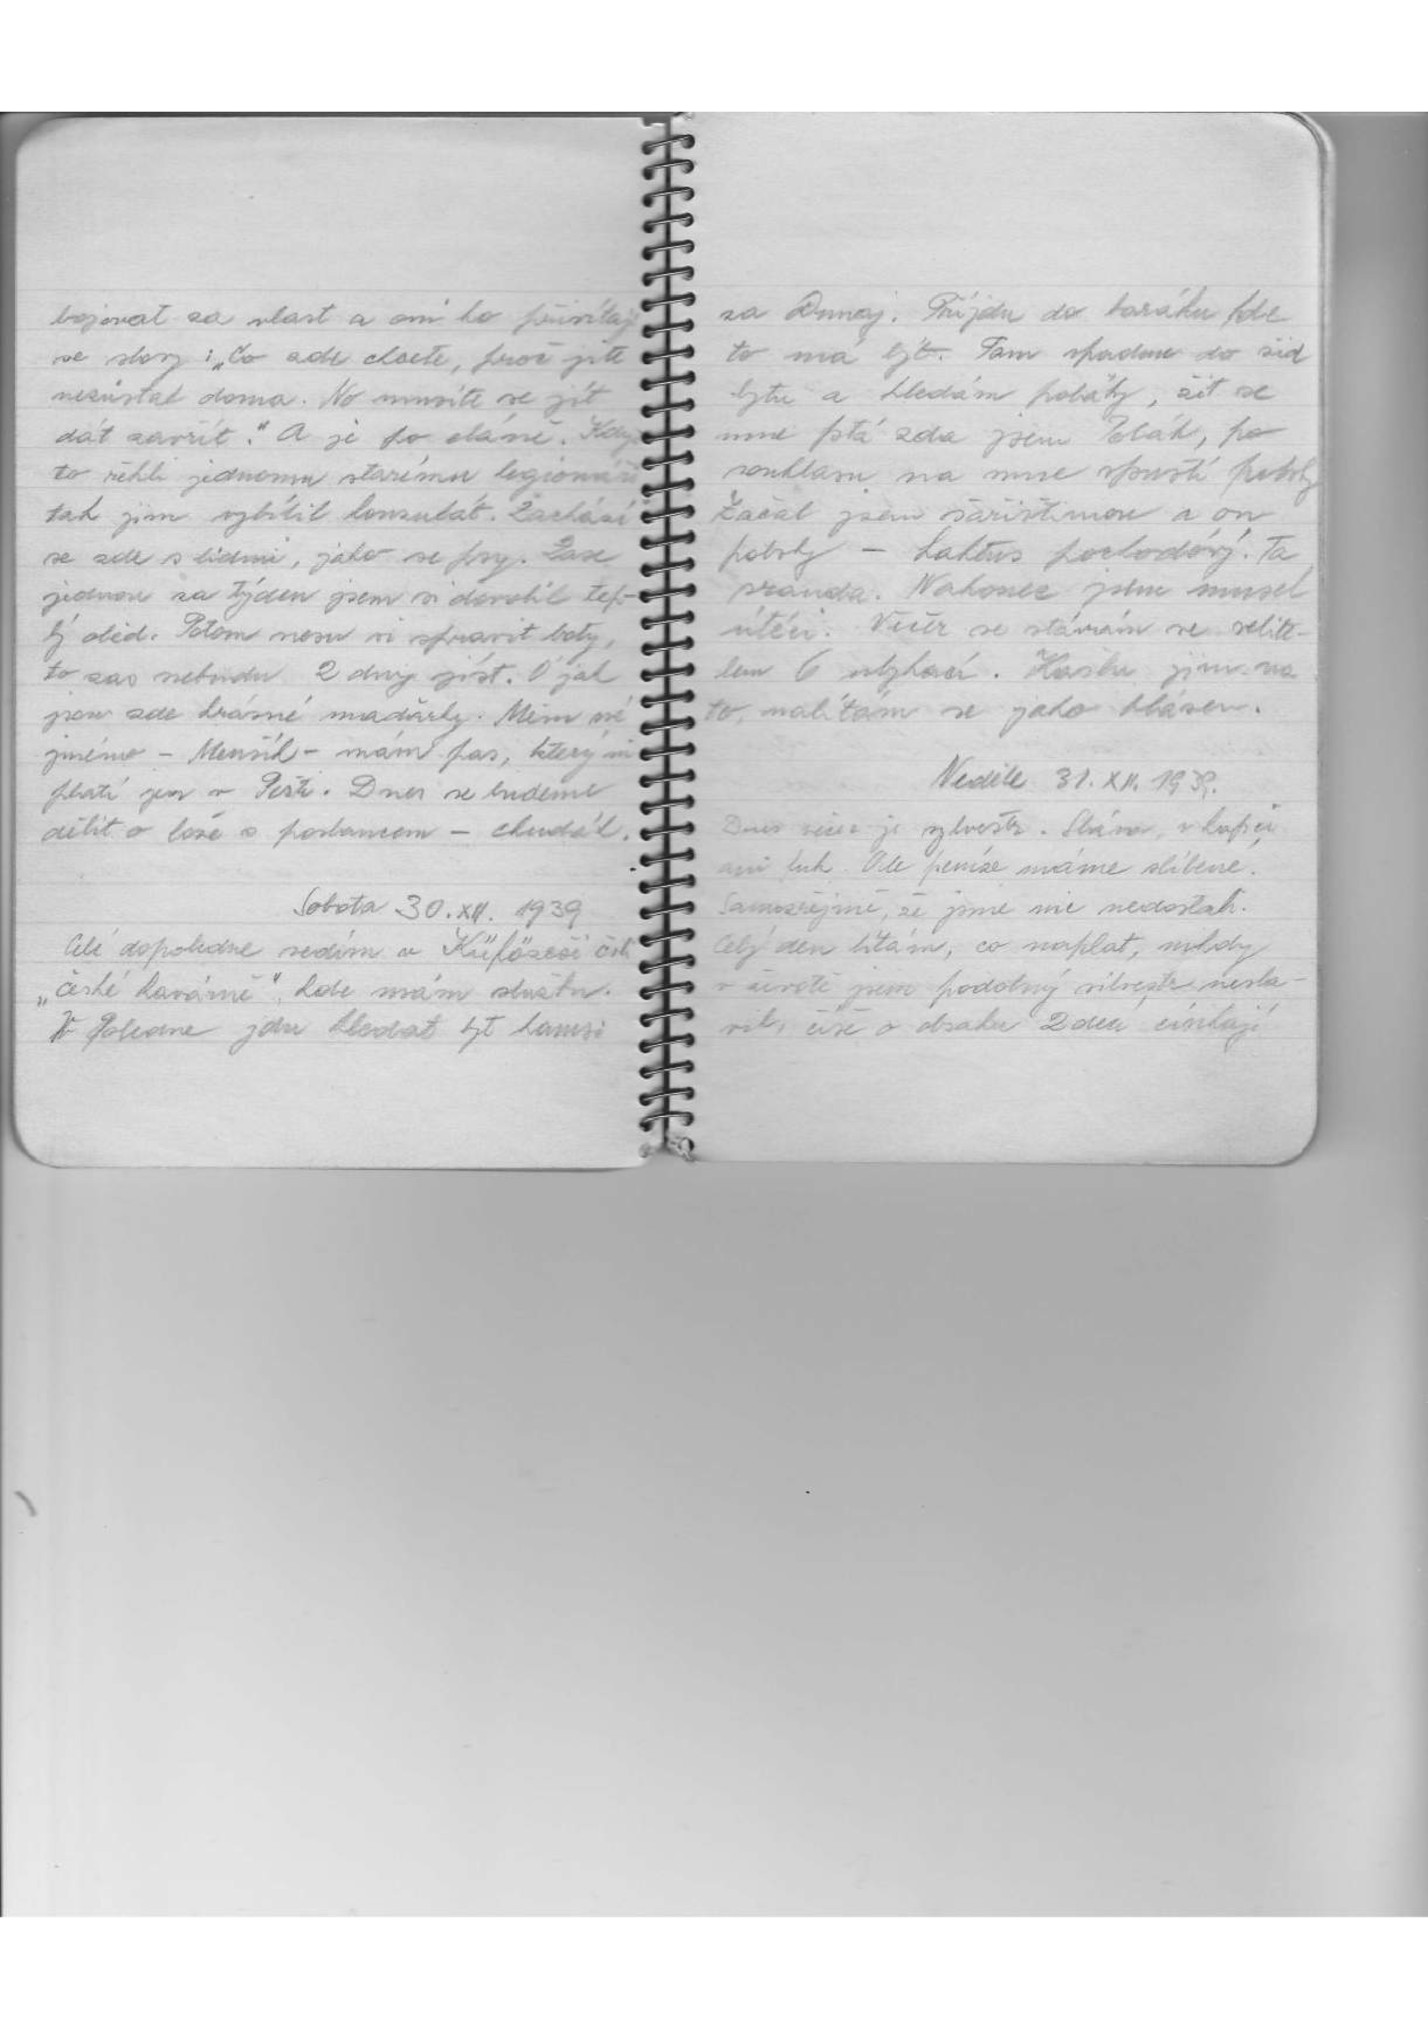 bojovat za vlast a oni ho přivítají
se slovy: „Co zde chcete, proč jste
nezůstal doma. No musíte se jít
dát zavřít." A je po slávě. Když
to řekli jednomu starému legionáři
tak jim vybílil konzulát. Zachází
se zde s lidmi, jako se psy. Zase
jednou za týden jsem si dovolil tep-
lý oběd. Potom nesu si spravit boty,
to zas nebudu 2 dny jíst. Ó jak
jsou zde krásné maďarky. Mám své
jméno – Menšík – mám pas, který mi
platí jen v Pešti. Dnes se budeme
dělit o lože s poslancem – chudák.
Sobota 30.XII. 1939
Celé dopoledne sedím v čili
„české kavárně", kde mám službu.
V Poledne jdu hledat byt kamsi
za Dunaj. Přijdu do baráku kde
to má být. Tam spadnu do žid
bytu a hledám poláky, žid se
mne ptá zda jsem Polák, po
souhlasu na mne spustí polsky
Začal jsem a on
polsky – pochodový. Ta
sranda. Nakonec jsem musel
utéci. Večer se stávám se velite-
lem 6 . Kašlu jim na
to, nalítám se jako blázen.
Neděle 31.XII. 1939.
Dnes večer je sylvestr. Sláva, v kapse
ani muk. Ale peníze máme slíbené.
Samozřejmě, že jsme nic nedostali.
Celý den lítám, co naplat, nikdy
v životě jsem podobný silvestr nesla-
vil, číše o obsahu 2 deci cinkají